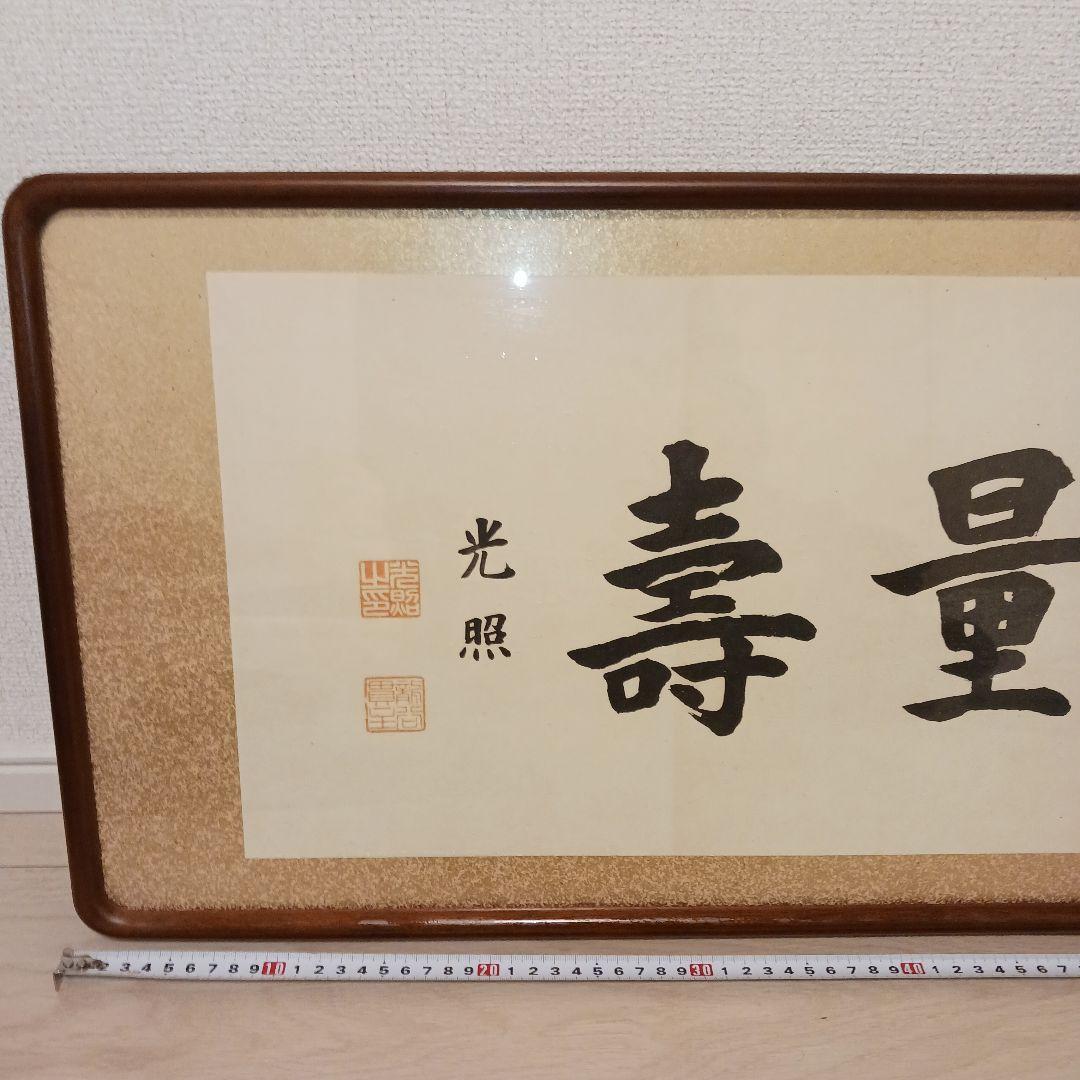 量壽
光照
光照之印
3 4 5 6 7 8 9 10 1 2 3 4 5 6 7 8 9 20 1 2 3 4 5 6 7 8 9 30 1 2 3 4 5 6 7 8 9 40 1 2 3 4 5 6 7